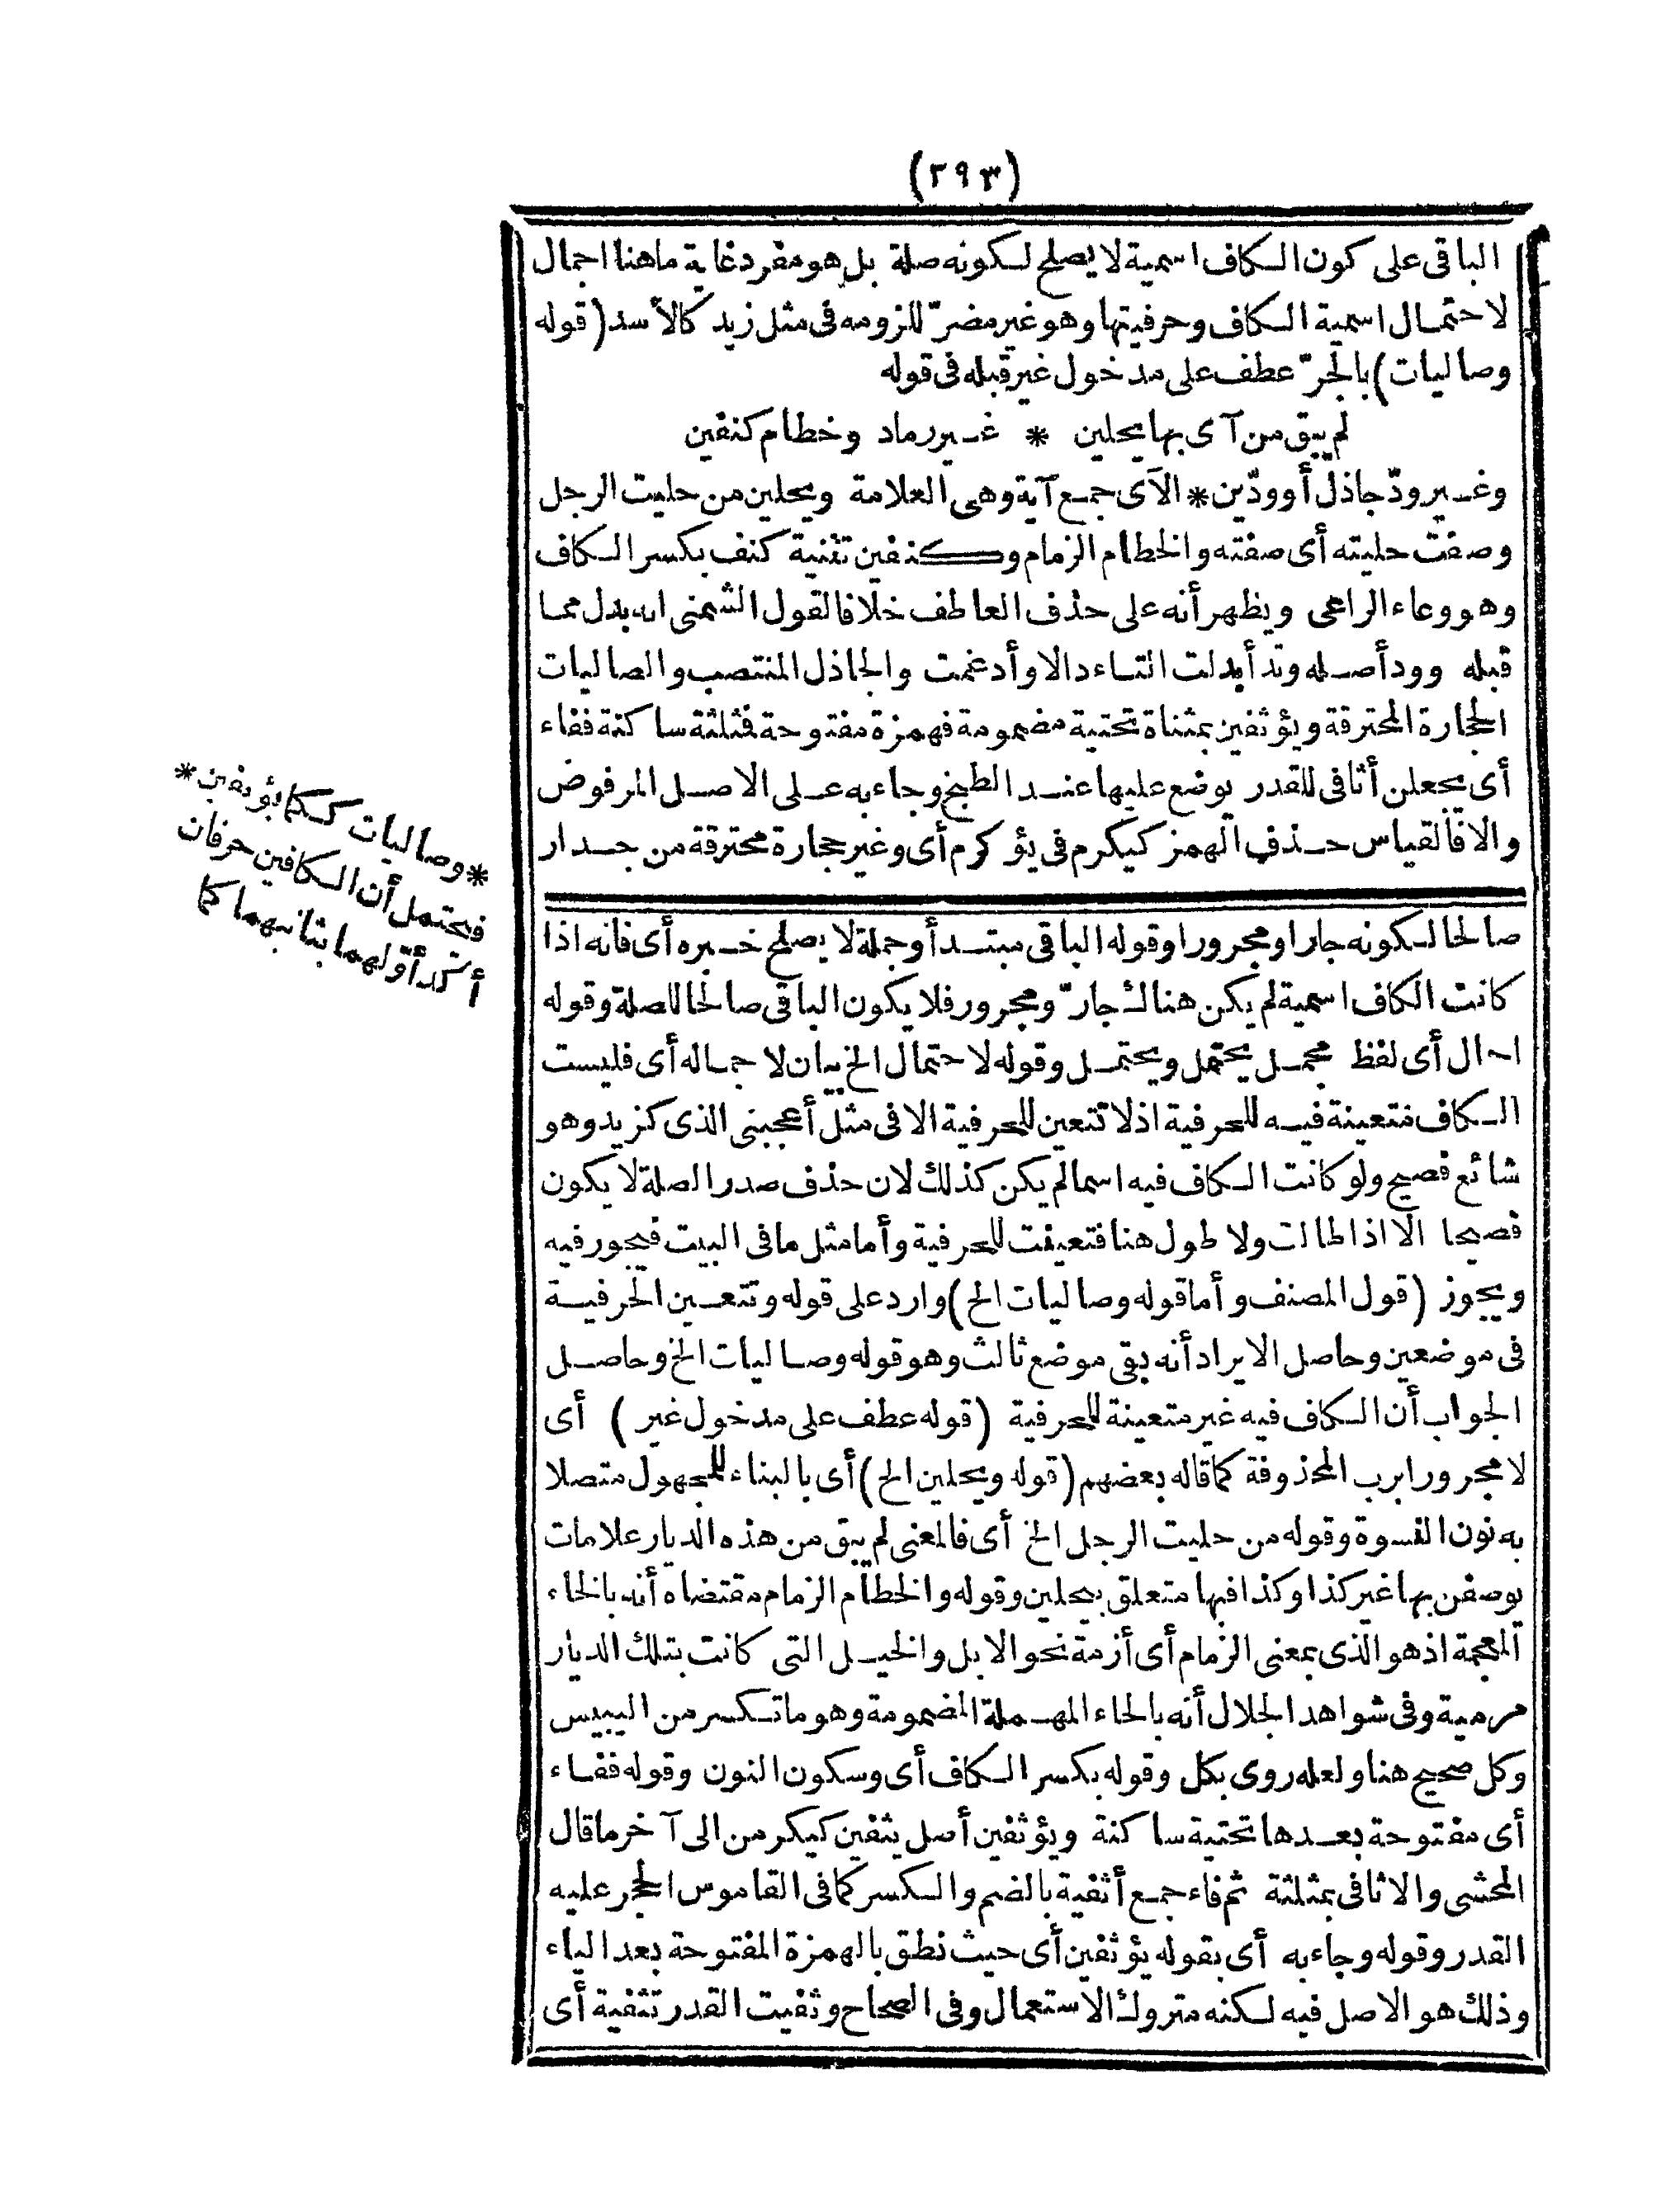 (٢٩٣)
الباقى على كون الكاف اسمية لا يصلح لكونه صلة بل هو مفرد غاية ما هنا اجمال
لاحتمال اسمية الكاف وحرفيتها وهو غير مضرّ للزومه فى مثل زيد كالأسد (قوله
وصاليات) بالجرّ عطف على مدخول غير قبله فى قوله
لم يبق من آى بها يحلين * غير رماد وخطام كنفين
وغير ودّ جاذل أو ودّين * الآى جمع آية وهى العلامة ويحلين من حليت الرجل
وصفت حليته أى صفته والخطام الزمام وكنفين تثنية كنف بكسر الكاف
وهو وعاء الراعى ويظهر أنه على حذف العاطف خلافا لقول الشمنى انه بدل مما
قبله وود أصله وتد أبدلت التاء دالا وأدغمت والجاذل المنتصب والصاليات
الحجارة المحترقة ويؤثفين بمثناة تحتية مضمومة فهمزة مفتوحة فمثلثة ساكنة ففاء
أى يجعلن أثافى للقدر يوضع عليها عند الطبخ وجاء به على الاصل المرفوض
والا فالقياس حذف الهمز كيكرم فى يؤكرم أى وغير حجارة محترقة من جدار
* وصاليات ككما يؤثفين *
فيحتمل أن الكافين حرفان
أكد أوّلهما بثانيهما كما
صالحا لكونه جارا ومجرورا وقوله الباقى مبتدأ وجملة لا يصلح خبره أى فانه اذا
كانت الكاف اسمية لم يكن هناك جارّ ومجرور فلا يكون الباقى صالحا للصلة وقوله
اجمال أى لفظ مجمل يحتمل ويحتمل وقوله لاحتمال الخ بيان لاجماله أى فليست
الكاف متعينة فيه للحرفية اذ لا تتعين للحرفية الا فى مثل أعجبنى الذى كزيد وهو
شائع فصيح ولو كانت الكاف فيه اسما لم يكن كذلك لان حذف صدر الصلة لا يكون
فصيحا الا اذا طالت ولا طول هنا فتعينت للحرفية وأما مثل ما فى البيت فيجوز فيه
ويجوز (قول المصنف وأما قوله وصاليات الخ) وارد على قوله وتتعين الحرفية
فى موضعين وحاصل الايراد أنه بقى موضع ثالث وهو قوله وصاليات الخ وحاصل
الجواب أن الكاف فيه غير متعينة للحرفية (قوله عطف على مدخول غير) أى
لا مجرورا برب المحذوفة كما قاله بعضهم (قوله ويحلين الخ) أى بالبناء للمجهول متصلا
به نون النسوة وقوله من حليت الرجل الخ أى فالمعنى لم يبق من هذه الديار علامات
يوصفن بها غير كذا وكذا فبها متعلق بيحلين وقوله والخطام الزمام مقتضاه أنه بالخاء
المعجمة اذ هو الذى بمعنى الزمام أى أزمة نحو الابل والخيل التى كانت بتلك الديار
مرمية وفى شواهد الجلال أنه بالحاء المهملة المضمومة وهو ما تكسر من اليبيس
وكل صحيح هنا ولعله روى بكل وقوله بكسر الكاف أى وسكون النون وقوله ففاء
أى مفتوحة بعدها تحتية ساكنة ويؤثفين أصل يثفين كيكرمن الى آخر ما قال
المحشى والاثافى بمثلثة ثم فاء جمع أثفية بالضم والكسر كما فى القاموس الحجر عليه
القدر وقوله وجاء به أى بقوله يؤثفين أى حيث نطق بالهمزة المفتوحة بعد الياء
وذلك هو الاصل فيه لكنه متروك الاستعمال وفى الصحاح وثفيت القدر تثفية أى